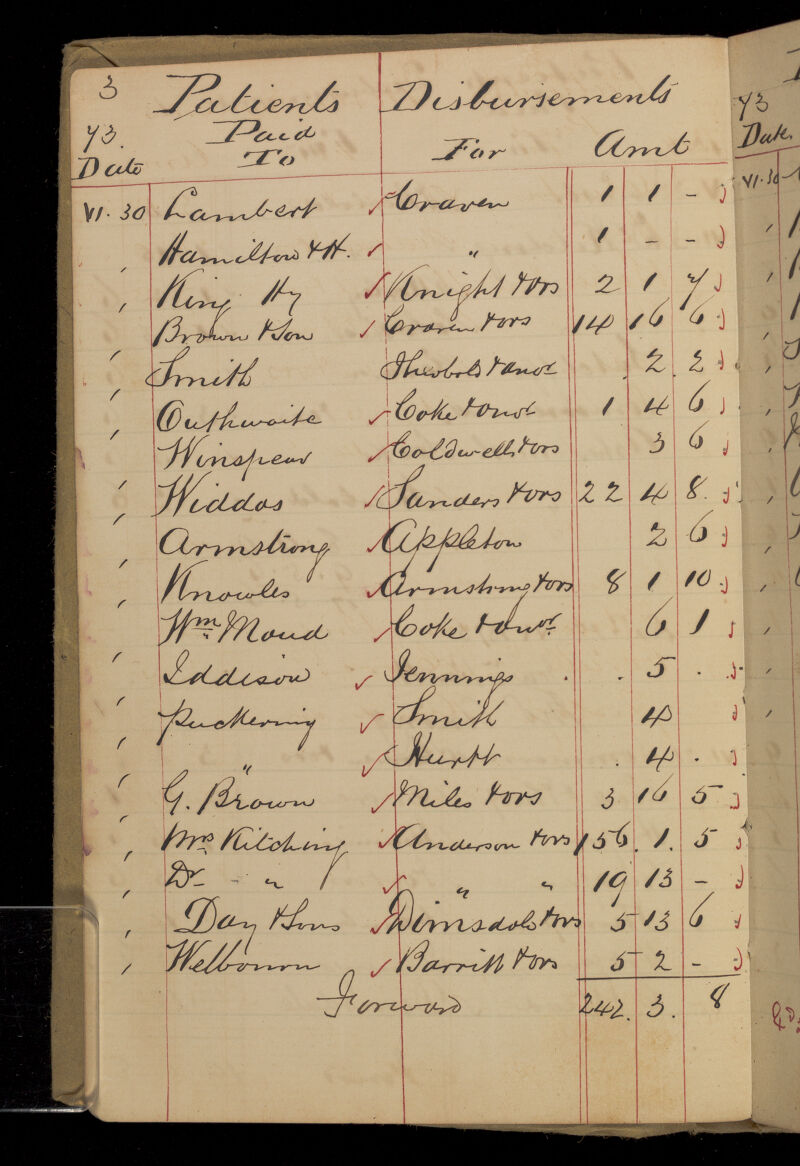 3
Patients Disbursements
73. Paid
Date To For Amt
VI. 30 Lambert Craven 1 1 -
Hamilton & H. " 1 - -
King Hy Knight & ors 2 1 7
Brown & Son Craven & ors 14 16 6
Smith Theobold & anor 2 2
Outhwaite Coke & anor 1 4 6
Winspear Coldwell & ors 3 6
Widdas Sanders & ors 22 4 8
Armstrong Appleton 2 6
Knowles Armstrong & ors 8 1 10
Wm Maud Coke & anor. 6 1
Iddison Jennings . . 5 .
Puckering Smith 4
" Hurtt . 4 .
G. Brown Miles & ors 3 16 5
Mrs Kitching Anderson & ors 156. 1. 5
Dr - " " " 19 13 -
Day & Sons Dimsdale & ors 5 13 6
Welbourn Barritt & ors 5 2 -
Forward 242. 3. 8
73
Date.
VI. 30